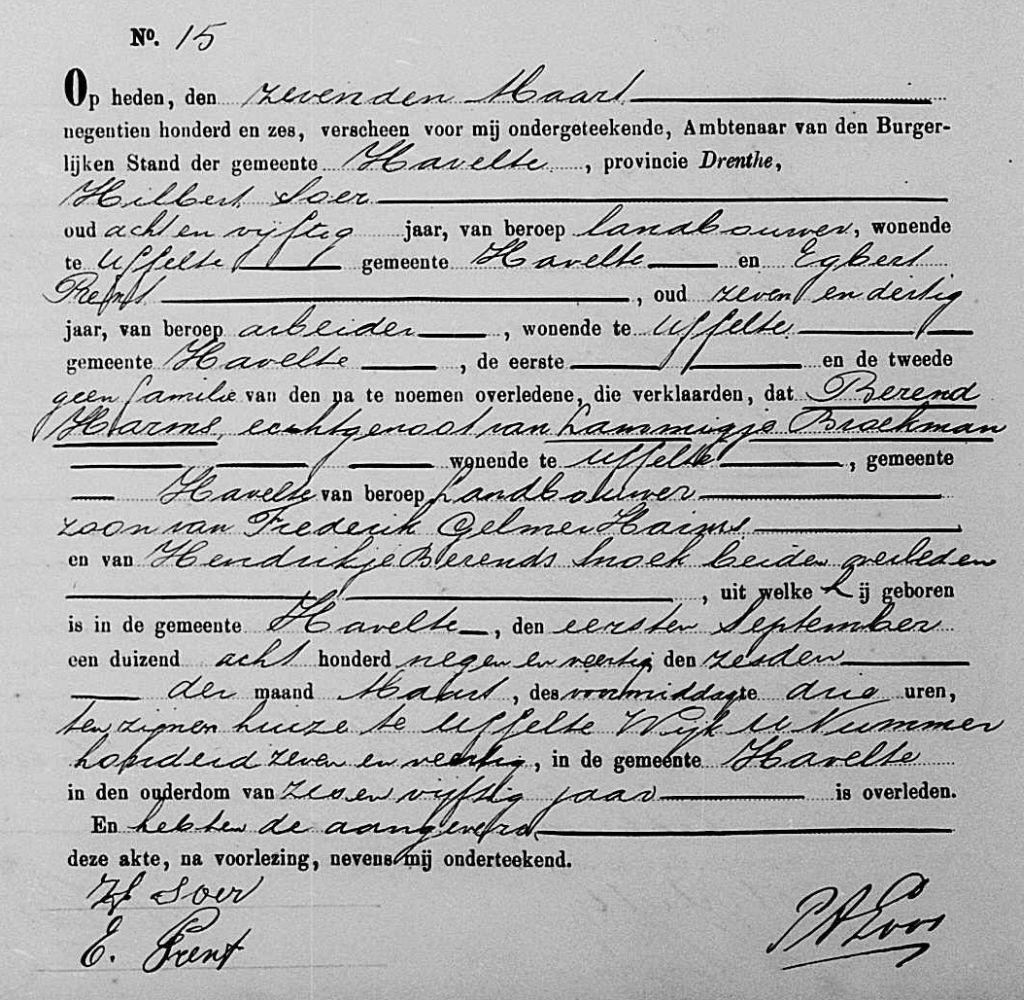 No. 15
Op heden, den zevenden Maart
negentien honderd en zes, verscheen voor mij ondergeteekende, Ambtenaar van den Burger-
lijken Stand der gemeente Havelte, provincie Drenthe,
Hilbert Soer
oud acht en vijftig jaar, van beroep landbouwer, wonende
te Uffelte gemeente Havelte en Egbert
Prent, oud zeven en dertig
jaar, van beroep arbeider, wonende te Uffelte
gemeente Havelte, de eerste en de tweede
geen familie van den na te noemen overledene, die verklaarden, dat Berend
Harms, echtgenoot van Lammigje Broekman
wonende te Uffelte, gemeente
Havelte van beroep Landbouwer
zoon van Frederik Gelmer Harms
en van Hendrikje Berends beiden overleden
, uit welke hij geboren
is in de gemeente Havelte, den eersten September
een duizend acht honderd negen en veertig den zesden
der maand Maart, des voormiddagte drie uren,
ten zijnen huize te Uffelte Wijk U Nummer
honderd zeven en veertig, in de gemeente Havelte
in den ouderdom van zes en vijftig jaar is overleden.
En hebben de aangevers
deze akte, na voorlezing, nevens mij onderteekend.
H Soer
E. Prent